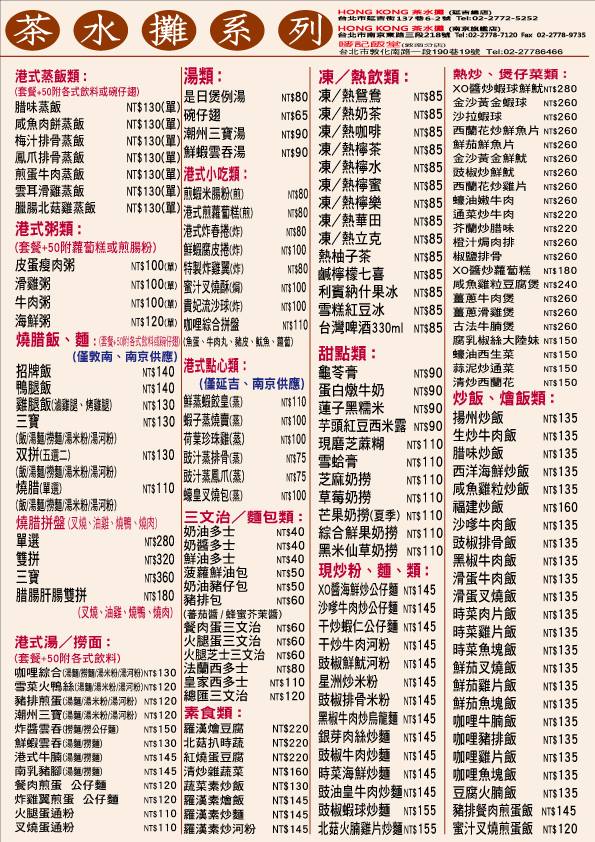 茶水攤系列
HONG KONG 茶水攤 (延吉總店)
台北市延吉街137巷6-2號 Tel:02-2772-5252
HONG KONG 茶水攤 (南京旗艦店)
台北市南京東路三段218號 Tel:02-2778-7120 Fax 02-2778-9735
台北市敦化南路一段190巷19號 Tel:02-27786466
港式蒸飯類：
(套餐+50附各式飲料或碗仔翅)
腊味蒸飯 NT$130(單)
咸魚肉餅蒸飯 NT$130(單)
梅汁排骨蒸飯 NT$130(單)
鳳爪排骨蒸飯 NT$130(單)
煎蛋牛肉蒸飯 NT$130(單)
雲耳滑雞蒸飯 NT$130(單)
臘腸北菇雞蒸飯 NT$130(單)
港式粥類：
(套餐+50附蘿蔔糕或煎腸粉)
皮蛋瘦肉粥 NT$100(單)
滑雞粥 NT$100(單)
牛肉粥 NT$100(單)
海鮮粥 NT$120(單)
燒腊飯、麵：(套餐+50附各式飲料或碗仔翅)
(僅敦南、南京供應)
招牌飯 NT$140
鴨腿飯 NT$140
雞腿飯(滷雞腿、烤雞腿) NT$130
三寶 NT$130
(飯/湯麵/撈麵/湯米粉/湯河粉)
双拼(五選二) NT$130
(飯/湯麵/撈麵/湯米粉/湯河粉)
燒腊(單選) NT$110
(飯/湯麵/撈麵/湯米粉/湯河粉)
燒腊拼盤(叉燒、油雞、燒鴨、燒肉)
單選 NT$280
雙拼 NT$320
三寶 NT$360
腊腸肝腸雙拼 NT$180
(叉燒、油雞、燒鴨、燒肉)
港式湯／撈面：
(套餐+50附各式飲料)
咖哩綜合(湯麵/撈麵/湯米粉/湯河粉)NT$130
雪菜火鴨絲(湯麵/湯米粉/湯河粉)NT$120
豬排煎蛋(湯麵/湯米粉/湯河粉) NT$120
潮州三寶(湯麵/湯米粉/湯河粉) NT$120
炸醬雲吞(湯麵/撈公仔麵) NT$150
鮮蝦雲吞(湯麵/撈麵) NT$130
港式牛腩(湯麵/撈麵) NT$145
南乳豬腳(湯麵/撈麵) NT$145
餐肉煎蛋 公仔麵 NT$120
炸雞翼煎蛋 公仔麵 NT$120
火腿蛋通粉 NT$110
叉燒蛋通粉 NT$110
湯類：
是日煲例湯 NT$80
碗仔翅 NT$65
潮州三寶湯 NT$90
鮮蝦雲吞湯 NT$90
港式小吃類：
煎蝦米腸粉(煎) NT$80
港式煎蘿蔔糕(煎) NT$80
港式炸春捲(炸) NT$80
鮮蝦腐皮捲(炸) NT$100
特製炸雞翼(炸) NT$80
蜜汁叉燒酥(焗) NT$100
貴妃流沙球(炸) NT$100
咖哩綜合拼盤 NT$110
(魚蛋、牛肉丸、豬皮、魷魚、蘿蔔)
港式點心類：
(僅延吉、南京供應)
鮮蒸蝦餃皇(蒸) NT$110
蝦子蒸燒賣(蒸) NT$100
荷葉珍珠雞(蒸) NT$100
豉汁蒸排骨(蒸) NT$75
豉汁蒸鳳爪(蒸) NT$75
蠔皇叉燒包(蒸) NT$100
三文治／麵包類：
奶油多士 NT$40
奶醬多士 NT$40
鮮油多士 NT$40
菠蘿鮮油包 NT$50
奶油豬仔包 NT$50
豬排包 NT$60
(蕃茄醬 / 蜂蜜芥茉醬)
餐肉蛋三文治 NT$60
火腿蛋三文治 NT$60
火腿芝士三文治 NT$60
法蘭西多士 NT$80
皇家西多士 NT$110
總匯三文治 NT$120
素食類：
羅漢燴豆腐 NT$220
北菇扒時蔬 NT$220
紅燒蛋豆腐 NT$220
清炒雜蔬菜 NT$160
蔬菜素炒飯 NT$130
羅漢素燴飯 NT$145
羅漢素炒麵 NT$145
羅漢素炒河粉 NT$145
凍／熱飲類：
凍／熱鴛鴦 NT$85
凍／熱奶茶 NT$85
凍／熱咖啡 NT$85
凍／熱檸茶 NT$85
凍／熱檸水 NT$85
凍／熱檸蜜 NT$85
凍／熱檸樂 NT$85
凍／熱華田 NT$85
凍／熱立克 NT$85
熱柚子茶 NT$85
鹹檸檬七喜 NT$85
利賓納什果冰 NT$85
雪糕紅豆冰 NT$85
台灣啤酒330ml NT$85
甜點類：
龜苓膏 NT$90
蛋白燉牛奶 NT$90
蓮子黑糯米 NT$90
芋頭紅豆西米露 NT$90
現磨芝蔴糊 NT$110
雪蛤膏 NT$110
芝麻奶撈 NT$110
草莓奶撈 NT$110
芒果奶撈(夏季) NT$110
綜合鮮果奶撈 NT$110
黑米仙草奶撈 NT$110
現炒粉、麵、類：
XO醬海鮮炒公仔麵 NT$145
沙嗲牛肉炒公仔麵 NT$145
干炒蝦仁公仔麵 NT$145
干炒牛肉河粉 NT$145
豉椒鮮魷河粉 NT$145
星洲炒米粉 NT$145
豉椒排骨米粉 NT$145
黑椒牛肉炒烏龍麵 NT$145
銀芽肉絲炒麵 NT$145
豉椒牛肉炒麵 NT$145
時菜海鮮炒麵 NT$145
豉油皇牛肉炒麵NT$145
豉椒蝦球炒麵 NT$155
北菇火腩雞片炒麵NT$155
熱炒、煲仔菜類：
XO醬炒蝦球鮮魷NT$280
金沙黃金蝦球 NT$260
沙拉蝦球 NT$260
西蘭花炒鮮魚片 NT$260
鮮茄鮮魚片 NT$260
金沙黃金鮮魷 NT$260
豉椒炒鮮魷 NT$260
西蘭花炒雞片 NT$260
蠔油嫩牛肉 NT$260
通菜炒牛肉 NT$220
芥蘭炒腊味 NT$220
橙汁焗肉排 NT$260
椒鹽排骨 NT$260
XO醬炒蘿蔔糕 NT$180
咸魚雞粒豆腐煲 NT$240
薑蔥牛肉煲 NT$260
薑蔥滑雞煲 NT$260
古法牛腩煲 NT$260
腐乳椒絲大陸妹 NT$150
蠔油西生菜 NT$150
蒜泥炒通菜 NT$150
清炒西蘭花 NT$150
炒飯、燴飯類：
揚州炒飯 NT$135
生炒牛肉飯 NT$135
腊味炒飯 NT$135
西洋海鮮炒飯 NT$135
咸魚雞粒炒飯 NT$135
福建炒飯 NT$160
沙嗲牛肉飯 NT$135
豉椒排骨飯 NT$135
黑椒牛肉飯 NT$135
滑蛋牛肉飯 NT$135
滑蛋叉燒飯 NT$135
時菜肉片飯 NT$135
時菜雞片飯 NT$135
時菜魚塊飯 NT$135
鮮茄叉燒飯 NT$135
鮮茄雞片飯 NT$135
鮮茄魚塊飯 NT$135
咖哩牛腩飯 NT$135
咖哩豬排飯 NT$135
咖哩雞片飯 NT$135
咖哩魚塊飯 NT$135
豆腐火腩飯 NT$135
豬排餐肉煎蛋飯 NT$145
蜜汁叉燒煎蛋飯 NT$120